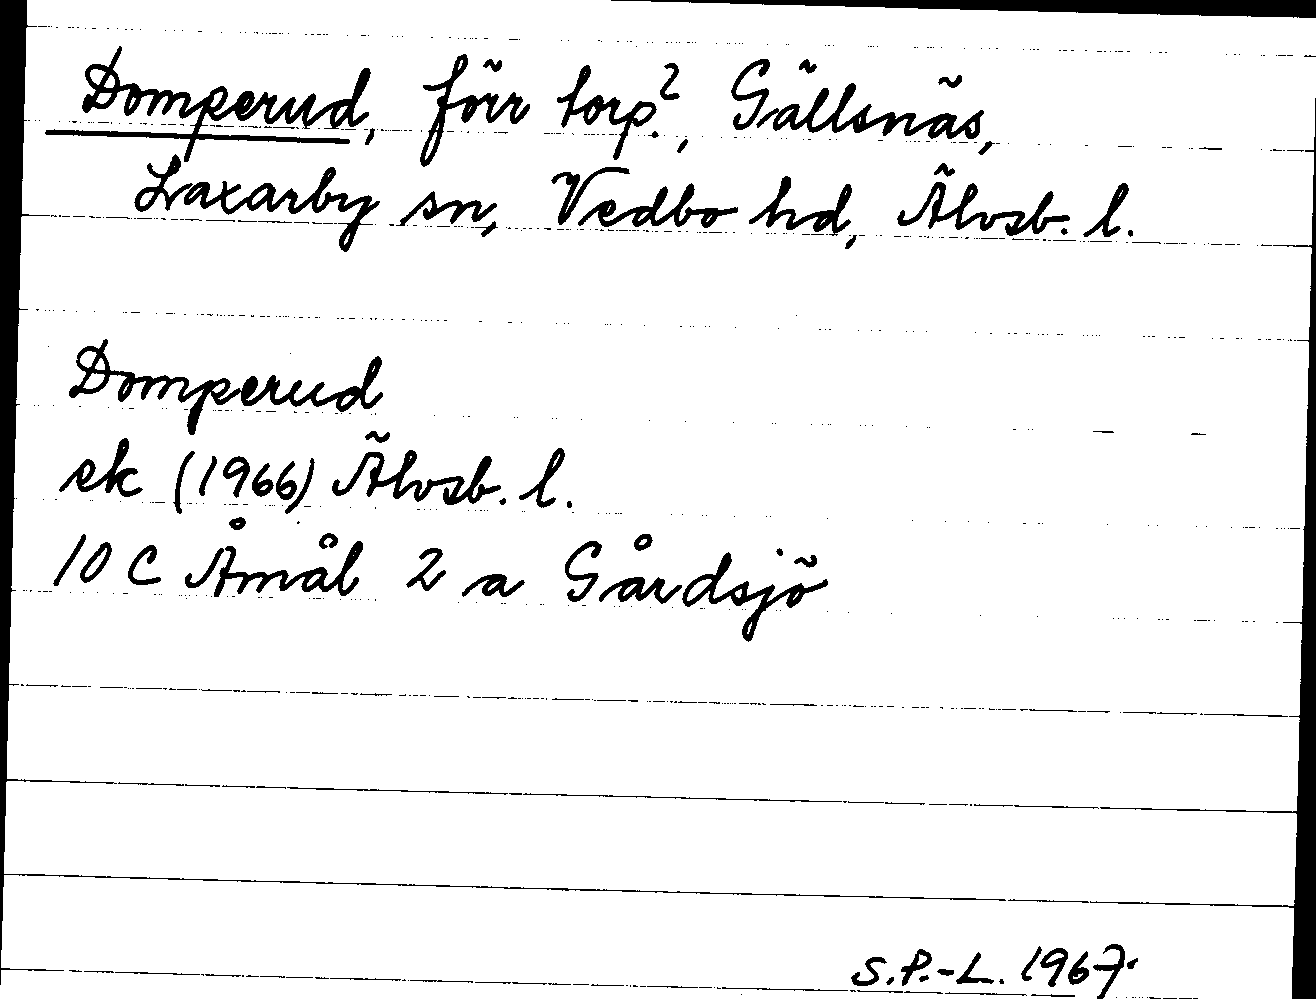 Domperud, förr torp?, Gällsnäs,
Laxarby sn, Vedbo hd, Älvsb. l.
Domperud
ek (1966) Älvsb. l.
10 C Åmål 2 a Gårdsjö
S.P.-L. 1967.